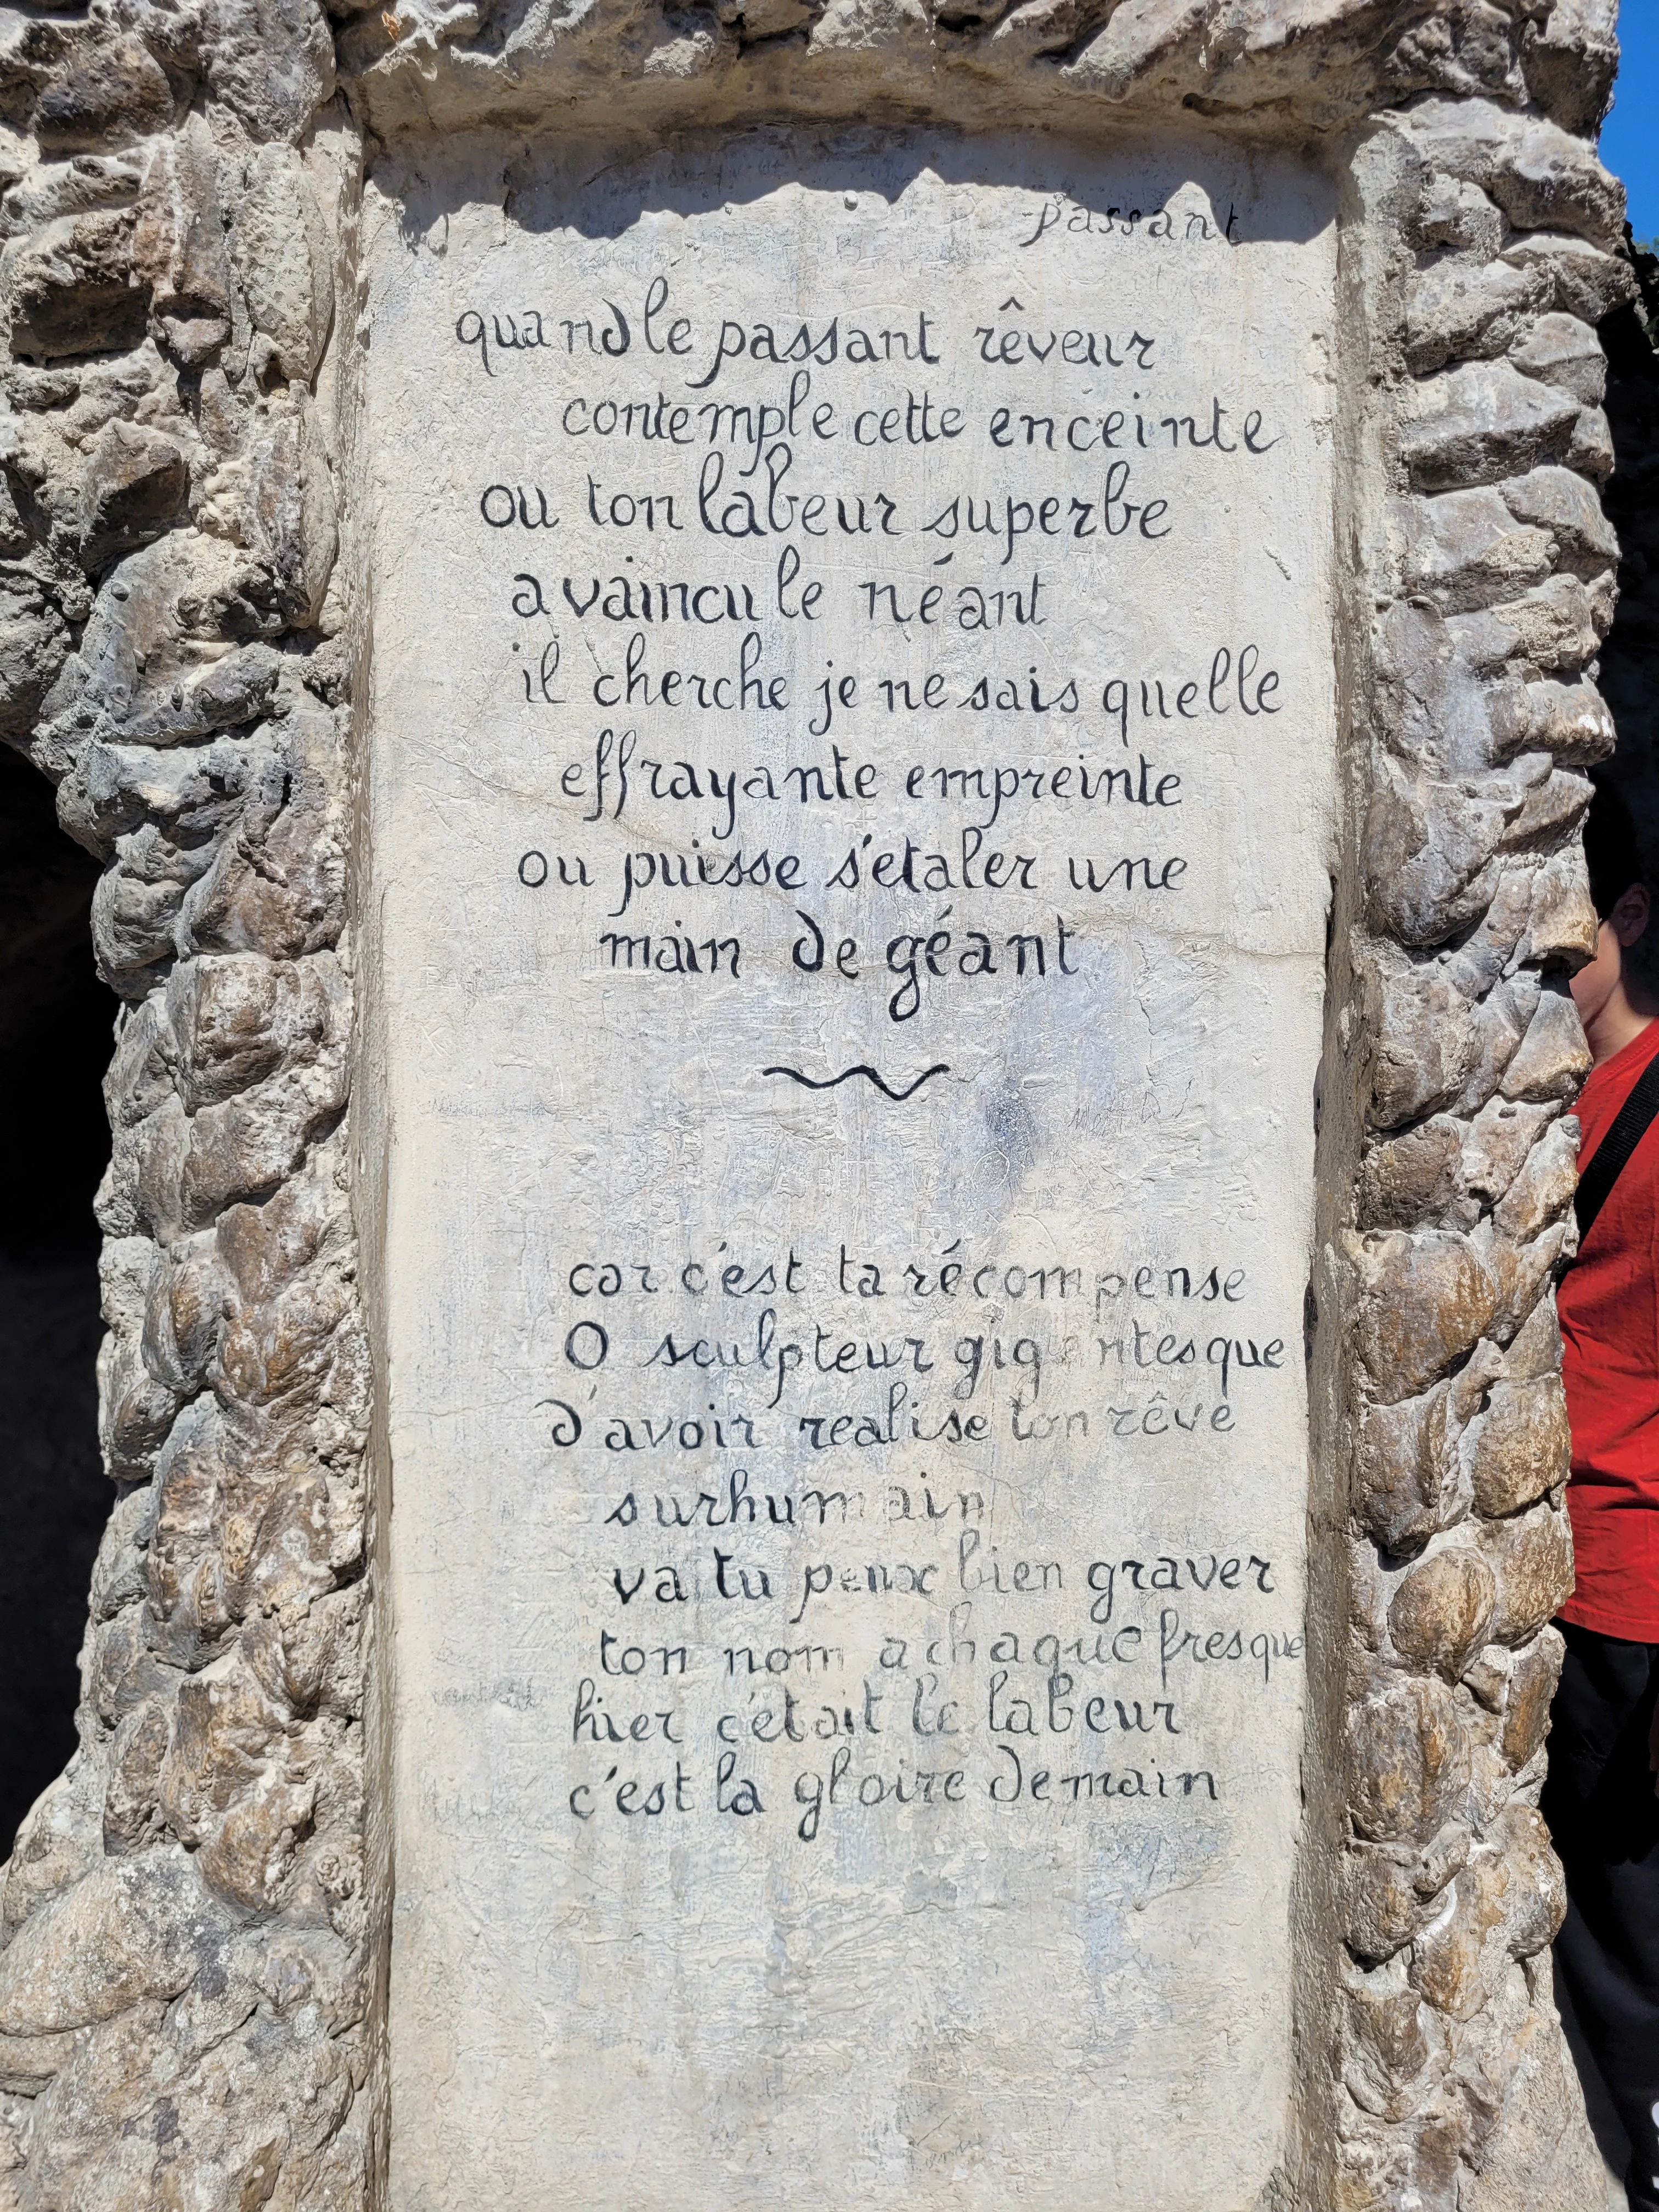 passant
quand le passant rêveur
contemple cette enceinte
ou ton labeur superbe
a vaincu le néant
il cherche je ne sais quelle
effrayante empreinte
ou puisse s'etaler une
main de géant
car c'est ta récompense
O sculpteur gigantesque
d'avoir realise ton rêve
surhumain
va tu peux bien graver
ton nom a chaque fresque
hier c'était le labeur
c'est la gloire demain